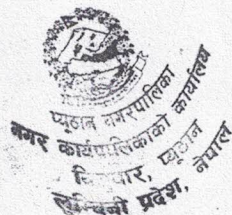 प्यूठान नगरपालिका
नगर कार्यपालिकाको कार्यालय
प्यूठान
लुम्बिनी प्रदेश, नेपाल